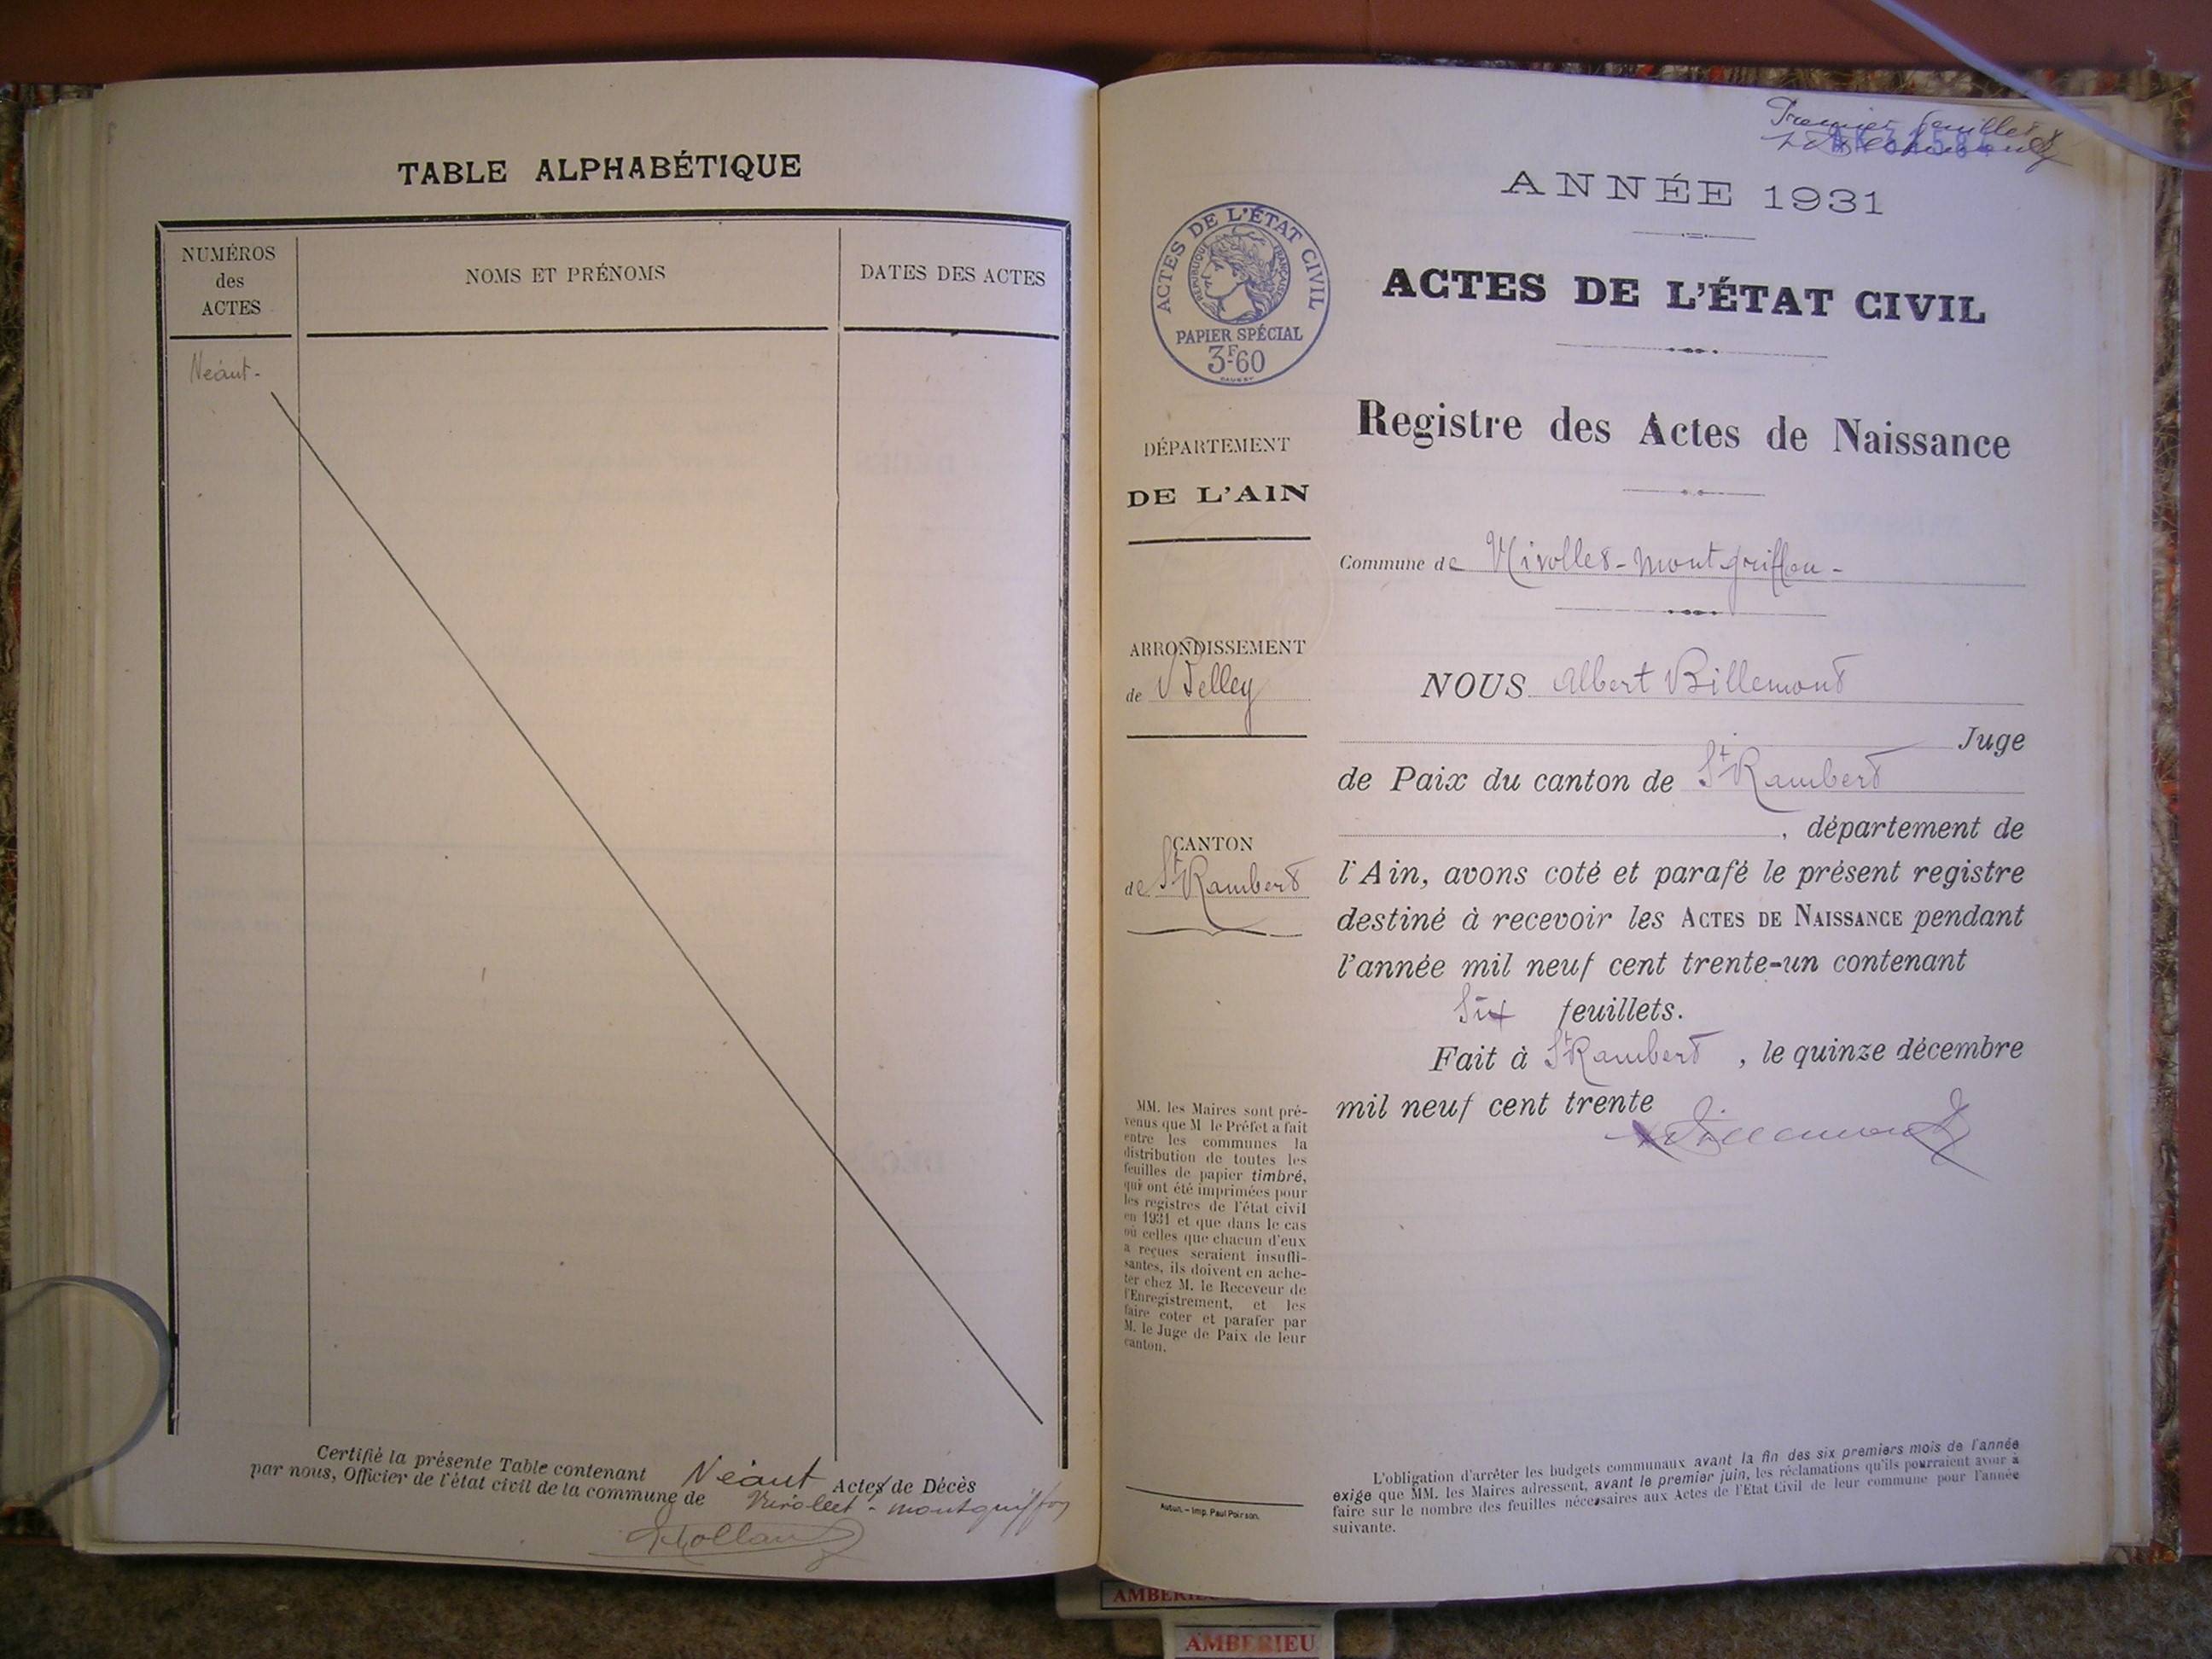 TABLE ALPHABÉTIQUE
NUMÉROS
des
ACTES
NOMS ET PRÉNOMS
DATES DES ACTES
Néant-
Certifié la présente Table contenant Néant Actes de Décès
par nous, Officier de l'état civil de la commune de Nivollet-montgriffon
Premier feuillet
ANNÉE 1931
ACTES DE L'ÉTAT CIVIL
RÉPUBLIQUE FRANÇAISE
PAPIER SPÉCIAL
3F.60
ACTES DE L'ÉTAT CIVIL
Registre des Actes de Naissance
DÉPARTEMENT
DE L'AIN
Commune de Nivolles-Montgriffon-
ARRONDISSEMENT
de Belley
CANTON
de St Rambert
MM. les Maires sont pré-
venus que M le Préfet a fait
entre les communes la
distribution de toutes les
feuilles de papier timbré,
qui ont été imprimées pour
les registres de l'état civil
en 1931 et que dans le cas
où celles que chacun d'eux
a reçues seraient insuffi-
santes, ils doivent en ache-
ter chez M. le Receveur de
l'Enregistrement, et les
faire coter et parafer par
M. le Juge de Paix de leur
canton.
Autun. – Imp. Paul Poirson.
NOUS Albert Billemont
Juge
de Paix du canton de St Rambert
, département de
l'Ain, avons coté et parafé le présent registre
destiné à recevoir les ACTES DE NAISSANCE pendant
l'année mil neuf cent trente-un contenant
Six feuillets.
Fait à St Rambert, le quinze décembre
mil neuf cent trente
Billemont
L'obligation d'arrêter les budgets communaux avant la fin des six premiers mois de l'année
exige que MM. les Maires adressent, avant le premier juin, les réclamations qu'ils pourraient avoir à
faire sur le nombre des feuilles nécessaires aux Actes de l'Etat Civil de leur commune pour l'année
suivante.
AMBERIEU